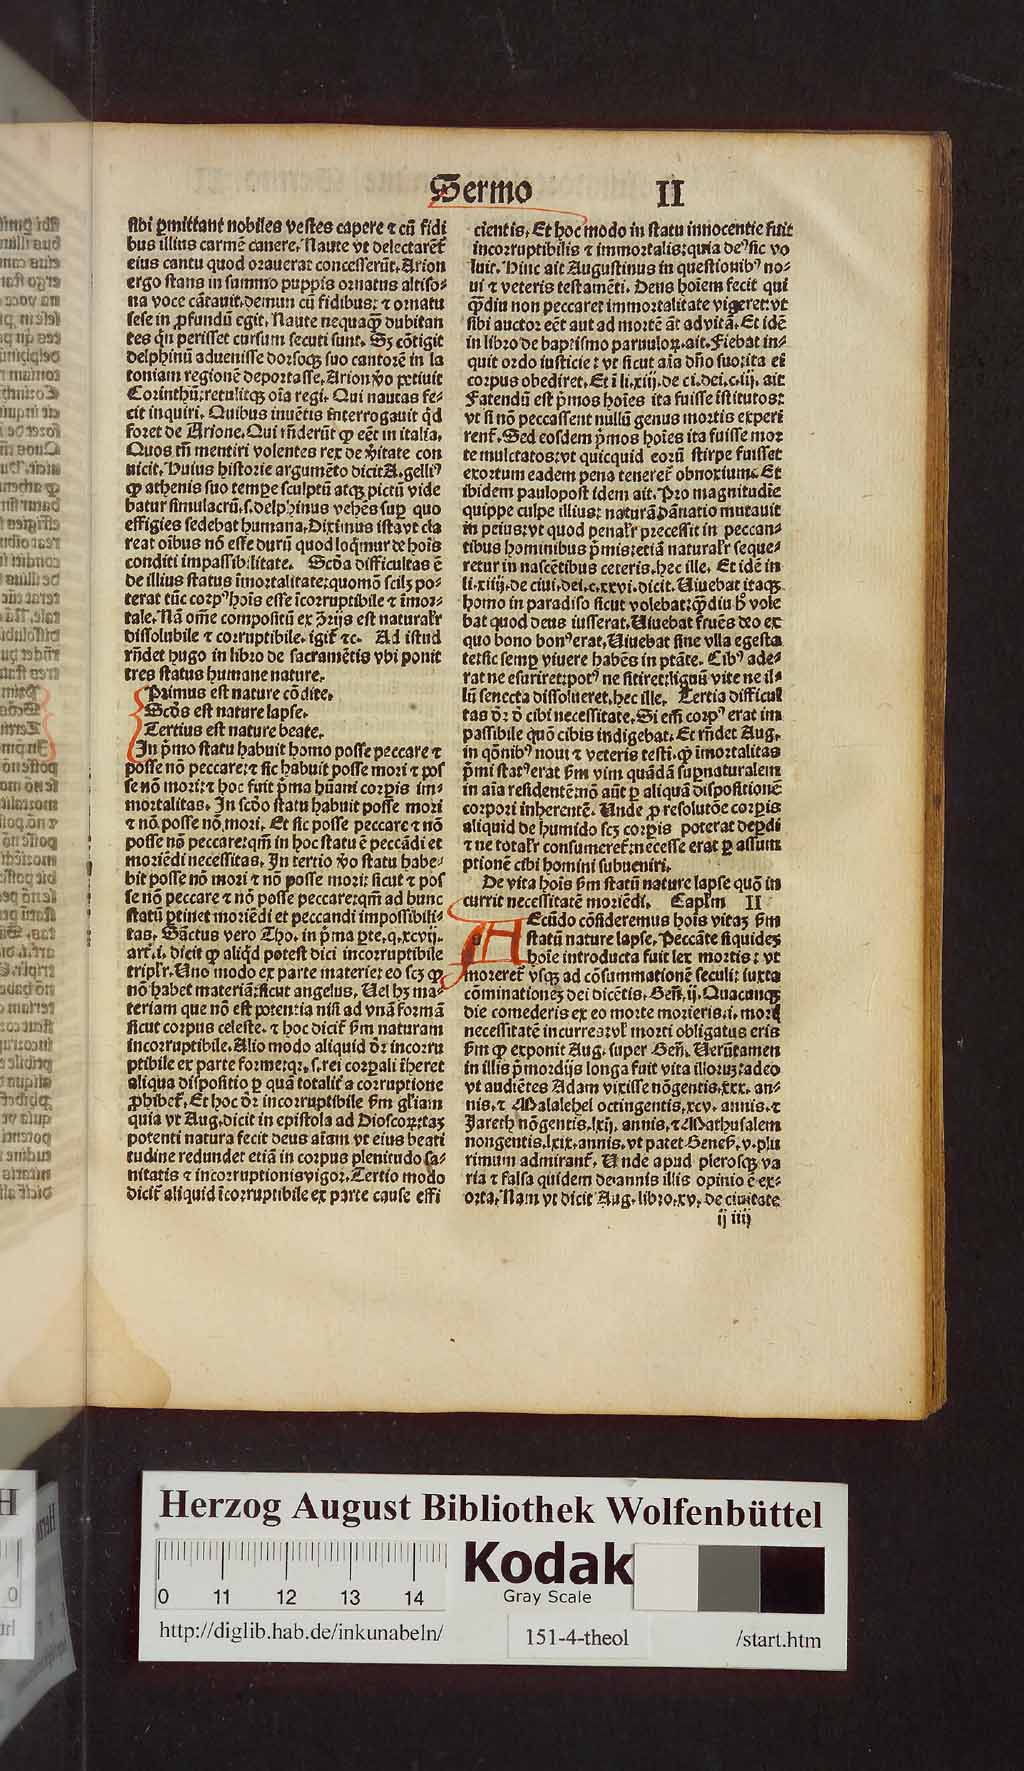 Sermo II
sibi ꝑmittant nobiles vestes capere ⁊ cū fidi
bus illius carmē canere. Naute vt delectarēt̃
eius cantu quod orauerat concesserūt. Arion
ergo stans in summo puppis ornatus altiso-
na voce cātauit. demun cū fidibus: ⁊ ornatu
sese in ꝓfundū egit. Naute nequaꝙ̃ dubitan
tes qn̄ perisset cursum secuti sunt. Sꝫ cōtigit
delphinū aduenisse dorsoqꝫ suo cantorē in la
toniam regionē deportasse. Arion ṽo petiuit
Corinthū: retulitqꝫ oīa regi. Qui nautas fe-
cit inquiri. Quibus inuētis interrogauit qͥd
foret de Arione. Qui rn̄derūt ꝙ eēt in italia.
Quos tn̄ mentiri volentes rex de ṽitate con
uicit. Huius historie argumēto dicit A. gelliꝰ
ꝙ athenis suo tempe sculptū atqꝫ pictū vide
batur simulacrū. s. delphinus vehēs suꝑ quo
effigies sedebat humana. Diximus ista vt cla
reat oībus nō esse durū quod loqͥmur de hoīs
conditi impassibilitate. Scḋa difficultas ē
de illius status īmortalitate: quomō scilꝫ po-
terat tūc corpꝰ hoīs esse īcorruptibile ⁊ īmor-
tale. Nā om̄e compositū ex ꝯ̄rijs est naturalr̄
dissolubile ⁊ corruptibile. igit̃ ⁊c. Ad istud
rn̄det hugo in libro de sacramētis vbi ponit
tres status humane nature.
Primus est nature cōdite.
Scḋs est nature lapse.
Tertius est nature beate.
In p̄mo statu habuit homo posse peccare ⁊
posse nō peccare: ⁊ sic habuit posse mori ⁊ pos
se nō mori: ⁊ hoc fuit p̄ma hūani corꝑis im-
mortalitas. In scḋo statu habuit posse mori
⁊ nō posse nō mori. Et sic posse peccare ⁊ nō
posse nō peccare: qm̄ in hoc statu ē peccādi et
moriēdi necessitas. In tertio ṽo statu habe-
bit posse nō mori ⁊ nō posse mori: sicut ⁊ pos
se nō peccare ⁊ nō posse peccare: qm̄ ad hunc
statū ꝑtinet moriēdi et peccandi impossibili-
tas. Sāctus vero Tho. in p̄ma ꝑte. q. xcvij.
art̄. i. dicit ꝙ aliqͥd potest dici incorruptibile
triplr̄. Uno modo ex parte materie: eo scꝫ ꝙ
nō habet materiā: sicut angelus. Uel hꝫ ma-
teriam que nō est potentia nisi ad vnā formā
sicut corpus celeste. ⁊ hoc dicit̃ ẜm naturam
incorruptibile. Alio modo aliquid dr̄ incorru
ptibile ex parte forme: qꝛ. s. rei corꝑali īheret
aliqua dispositio ꝑ quā totalit̃ a corruptione
ꝓhibet̃. Et hoc dr̄ incorruptibile ẜm gl̄iam
quia vt Aug. dicit in epistola ad Dioscoꝝ: taꝫ
potenti natura fecit deus aīam vt eius beati
tudine redundet etiā in corpus plenitudo sa-
nitatis ⁊ incorruptionis vigor. Tertio modo
dicit̃ aliquid īcorruptibile ex parte cause effi
cientis. Et hoc modo in statu innocentie fuit
incorruptibilis ⁊ immortalis: quia deꝰ sic vo
luit. Hinc ait Augustinus in questionibꝰ no-
ui ⁊ veteris testamēti. Deus hoīem fecit qui
ꝙ̃diu non peccaret immortalitate vigeret: vt
sibi auctor eēt aut ad mortē aūt ad vitā. Et idē
in libro de baptismo paruuloꝝ. ait. Fiebat in-
quit ordo iusticie: vt sicut aīa dn̄o suo: ita ei
corpus obediret. Et ī li. xiij. de ci. dei. c. iij. ait
Fatendū est p̄mos hoīes ita fuisse īstitutos:
vt si nō peccassent nullū genus mortis experi
rent̃. Sed eosdem p̄mos hoīes ita fuisse mor
te mulctatos: vt quicquid eorū stirpe fuisset
exortum eadem pena teneret̃ obnoxium. Et
ibidem paulopost idem ait. Pro magnitudīe
quippe culpe illius: naturā dānatio mutauit
in peius: vt quod penalr̄ precessit in peccan-
tibus hominibus p̄mis: etiā naturalr̄ seque-
retur in nascētibus ceteris. hec ille. Et idē in
li. xiiij. de ciui. dei. c. xxvi. dicit. Uiuebat itaqꝫ
homo in paradiso sicut volebat: ꝙ̃diu hͦ vole
bat quod deus iusserat. Uiuebat fruēs deo ex
quo bono bonꝰ erat. Uiuebat sine vlla egesta
te: sic semꝑ viuere habēs in ptāte. Cibꝰ ade-
rat ne esuriret: potꝰ ne sitiret: lignū vite ne il-
lū senecta dissolueret. hec ille. Tertia difficul
tas dr̄ ḋ cibi necessitate. Si em̄ corpꝰ erat im
passibile quō cibis indigebat. Et rn̄det Aug.
in qōnibꝰ noui ⁊ veteris testi. ꝙ īmortalitas
p̄mi statꝰ erat ẜm vim quādā suꝑnaturalem
in aīa residentē: nō aūt ꝑ aliquā dispositionē
corpori inherentē. Unde ꝑ resolutōe corꝑis
aliquid de humido scꝫ corꝑis poterat deꝑdi
⁊ ne totalr̄ consumeret̃: necesse erat ꝑ assum
ptionē cibi homini subueniri.
De vita hoīs ẜm statū nature lapse quō in
currit necessitatē moriēdi. Capl̄m II
SEcūdo cōsideremus hoīs vitaꝫ ẜm
statū nature lapse. Peccāte siquideꝫ
hoīe introducta fuit lex mortis: vt
moreret̃ vsqꝫ ad cōsummationē seculi: iuxta
cōminationeꝫ dei dicētis. Gen̄. ij. Quacunqꝫ
die comederis ex eo morte morieris. i. mori
necessitatē incurres: vl̓ morti obligatus eris
ẜm ꝙ exponit Aug. super Gen̄. Uerūtamen
in illis p̄mordijs longa fuit vita illoruꝫ: adeo
vt audiētes Adam vixisse nōgentis. xxx. an-
nis. ⁊ Malalehel octingentis. xcv. annis. ⁊
Jareth nōgentis. lxij. annis. ⁊ Mathusalem
nongentis. lxix. annis. vt patet Geneẜ. v. plu
rimum admirant̃. Unde apud plerosqꝫ va
ria ⁊ falsa quidem de annis illis opinio ē ex-
orta. Nam vt dicit Aug. libro. xv. de ciuitate
ij iiij
Herzog August Bibliothek Wolfenbüttel
0 11 12 13 14
Kodak
Gray Scale
http://diglib.hab.de/inkunabeln/ 151-4-theol /start.htm